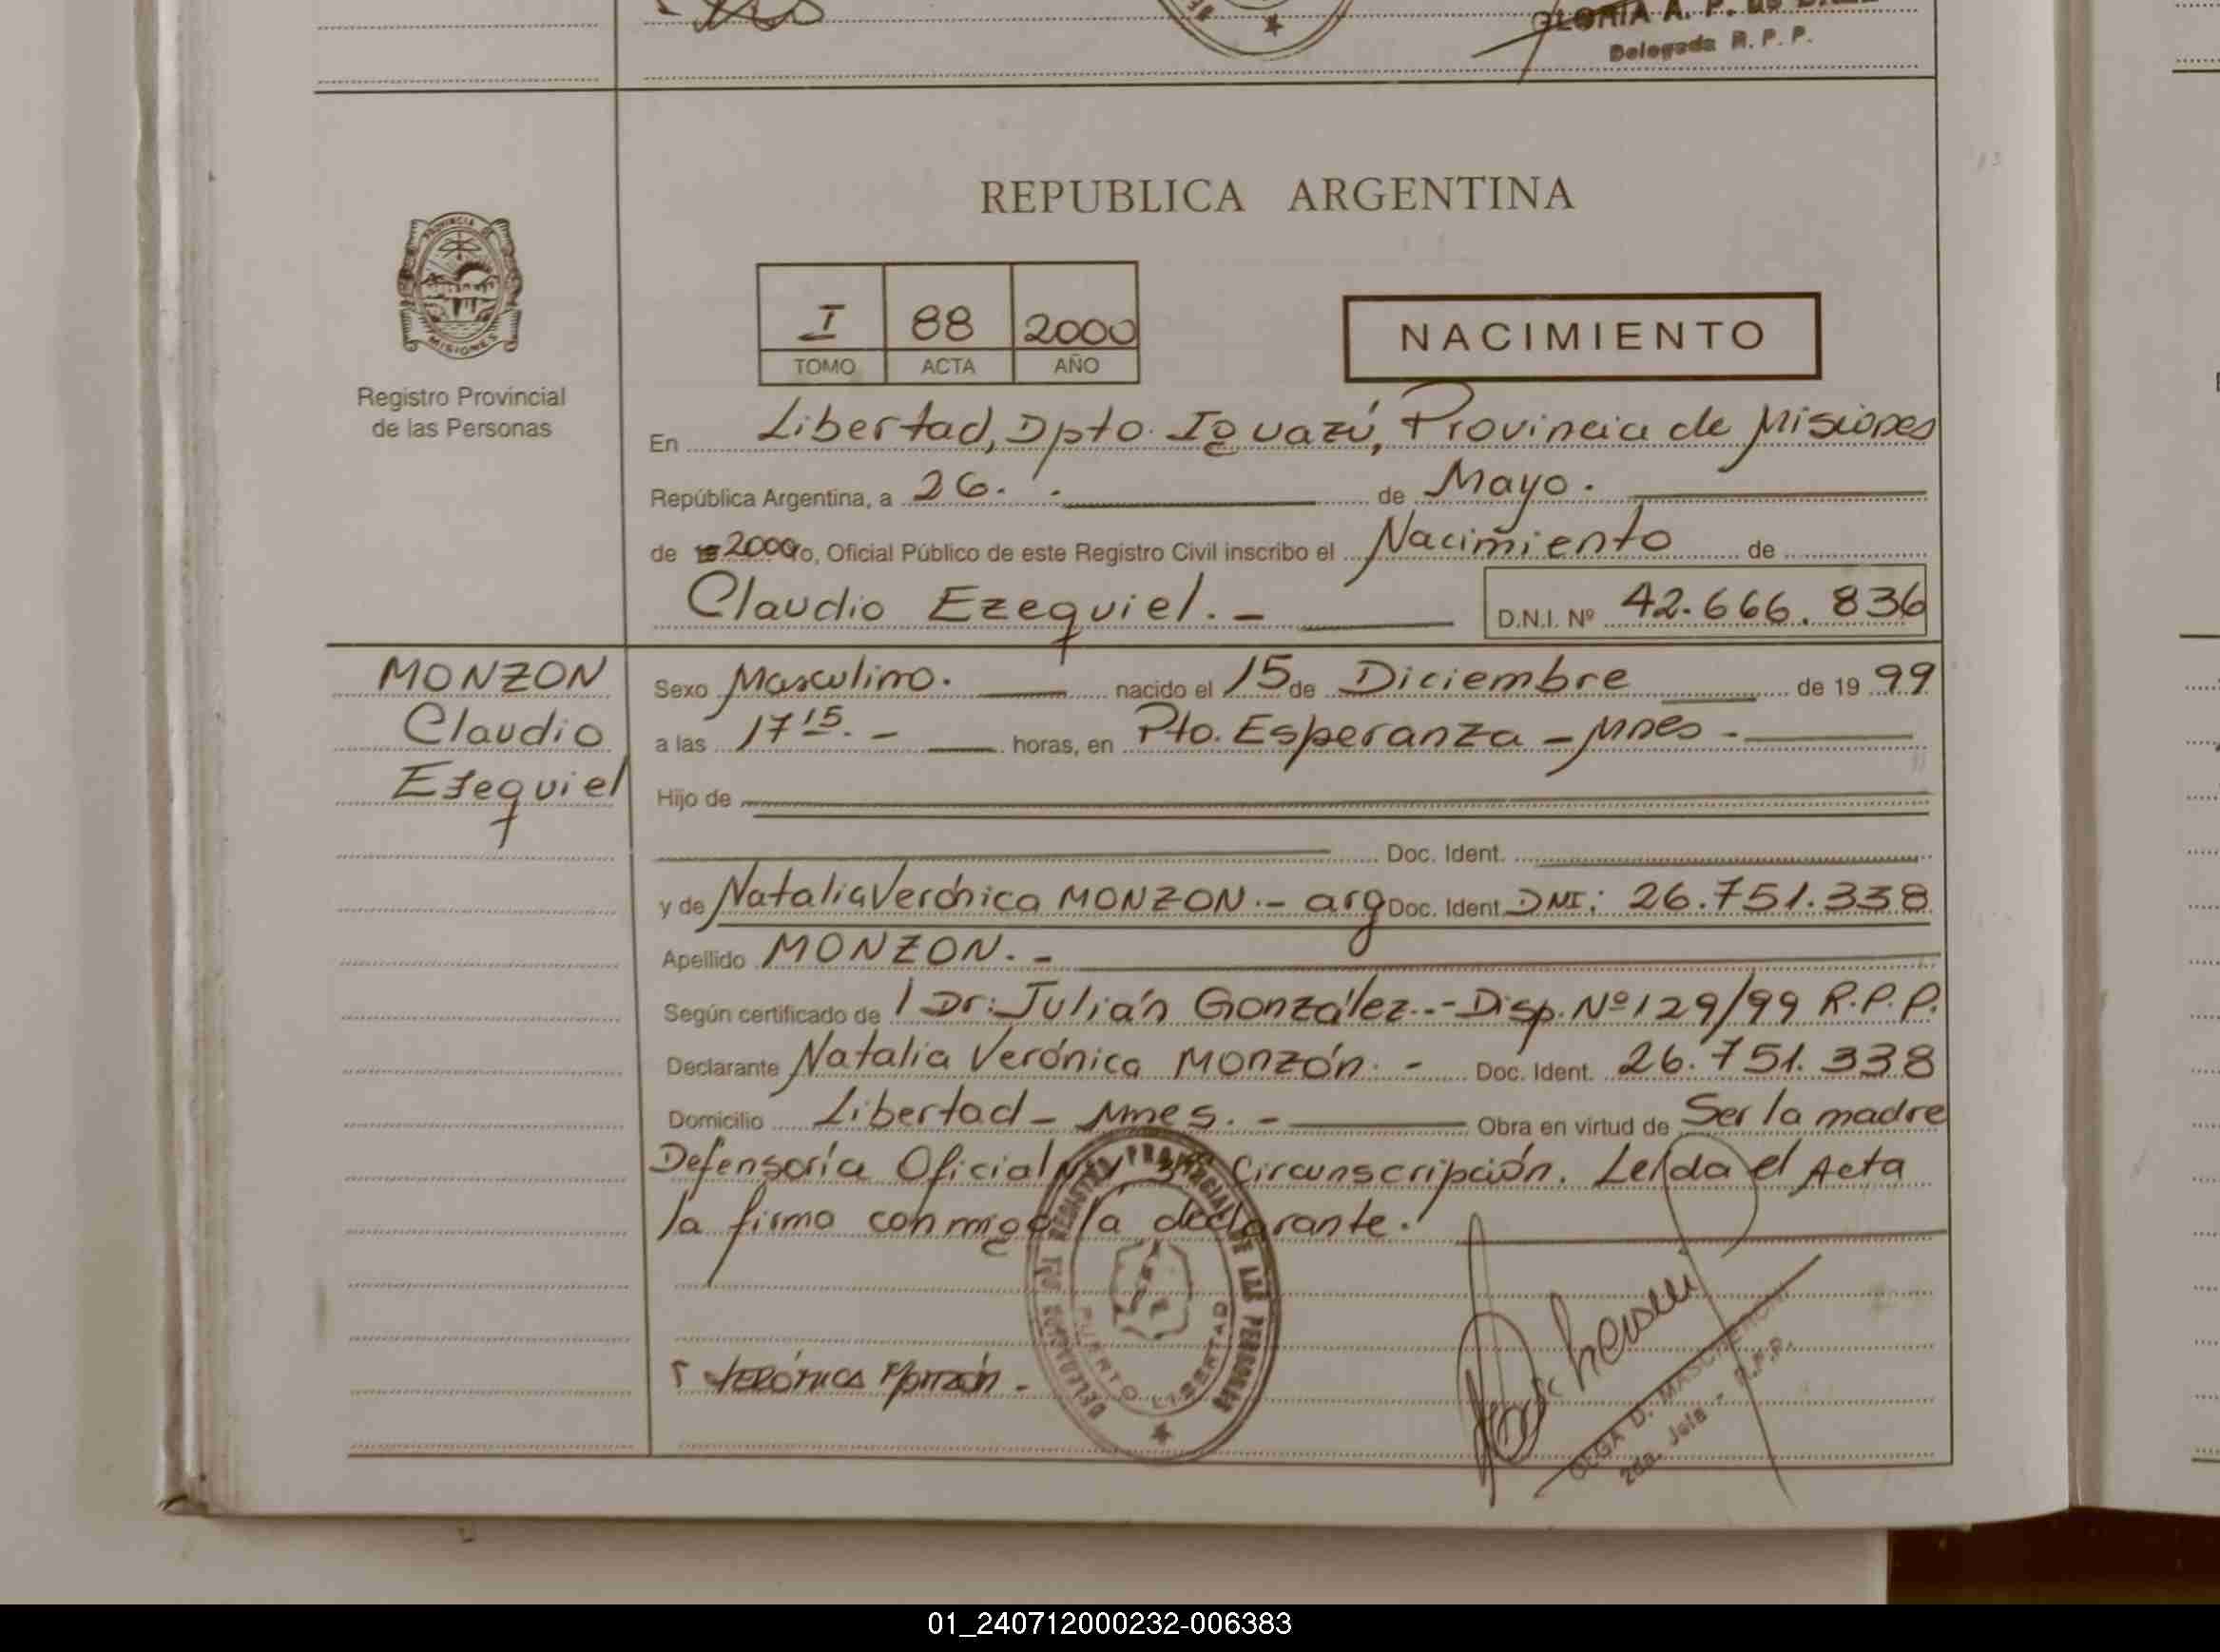 GLORIA A. P. de
Delegada R. P. P.
REPUBLICA ARGENTINA
PROVINCIA DE
MISIONES
Registro Provincial
de las Personas
I 88 2000
TOMO ACTA AÑO
NACIMIENTO
En Libertad, Dpto. Iguazú, Provincia de Misiones
República Argentina, a 26. - de Mayo.
de 19 2000 yo, Oficial Público de este Registro Civil inscribo el Nacimiento de
Claudio Ezequiel. - D.N.I. Nº 42.666.836
MONZON
Claudio
Ezequiel
Sexo Masculino. nacido el 15 de Diciembre de 19 99
a las 17 15. - horas, en Pto. Esperanza - Mnes -
Hijo de
Doc. Ident.
y de Natalia Verónica MONZON. - arg Doc. Ident. DNI: 26.751.338
Apellido MONZON. -
Según certificado de 1 Dr: Julián González. - Disp. Nº 129/99 R.P.P.
Declarante Natalia Verónica Monzón. - Doc. Ident. 26.751.338
Domicilio Libertad - Mnes. - Obra en virtud de Ser la madre
Defensoría Oficial Circunscripción. Leída el Acta
la firma conmigo la declarante.
REGISTRO PROVINCIAL DE LAS PERSONAS
PUERTO LIBERTAD
Verónica Monzón -
OLGA D.
2da. Jefa - R.P.P.
01_240712000232-006383